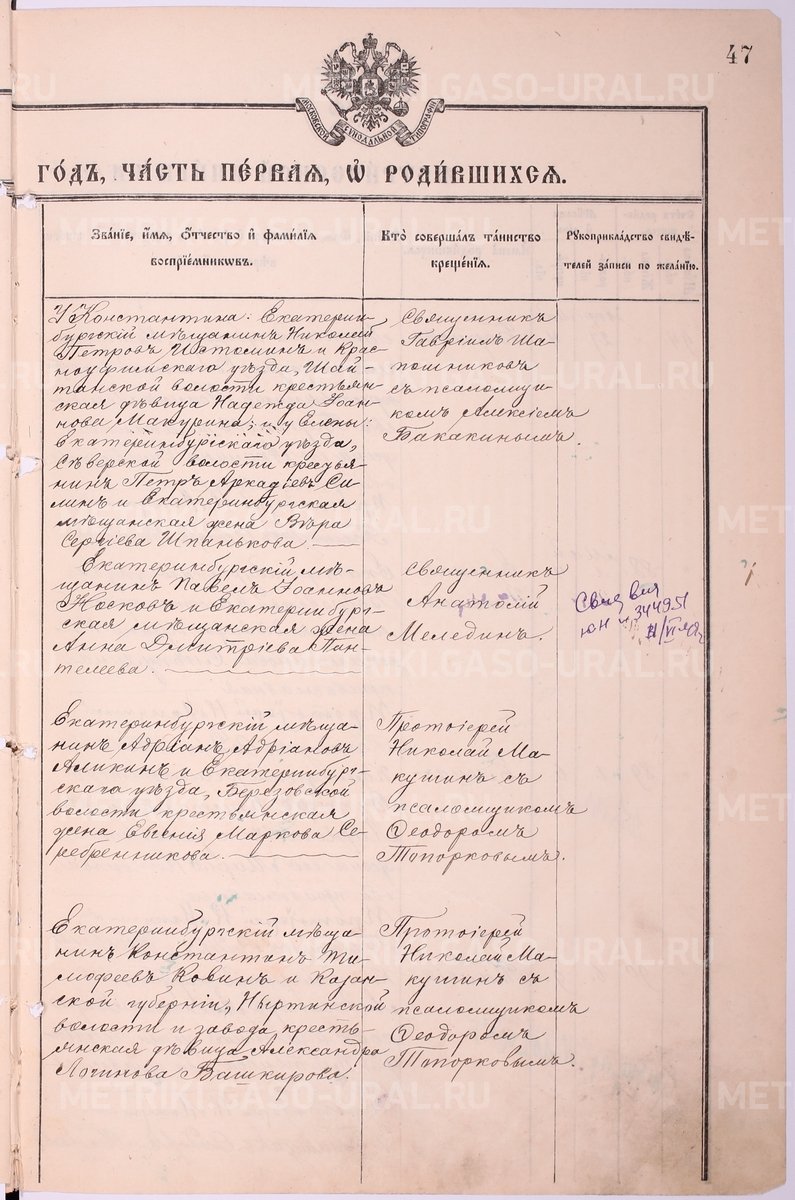 47
МОСКОВСКОЙ СѴНОДАЛЬНОЙ ТИПОГРАФІИ
ГО́ДЪ, ЧА́СТЬ ПЕ́РВАЯ, Ѡ҆ РОДИ́ВШИХСѦ.
Зва́нїе, и҆́мя, ѻ҆́тчество и҆ фами́лїя
воспрїе́мникѡвъ.
Кто̀ соверша́лъ та́инство
креще́нїя.
Рꙋкоприкла́дство свидѣ́-
телей за́писи по жела́нїю.
У Константина: Екатерин-
бургскій мѣщанинъ Николай
Петровъ Истоминъ и Крас-
ноуфимскаго уѣзда, Шай-
танской волости крестьян-
ская дѣвица Надежда Іоан-
нова Макурина; и у Елены:
Екатеринбургскаго уѣзда,
Сѣверской волости крестья-
нинъ Петръ Аркадіевъ Си-
линъ и Екатеринбургская
мѣщанская жена Вѣра
Сергіева Шпанькова.
Священникъ
Гавріилъ Ша-
пошниковъ
съ псаломщи-
комъ Алексіемъ
Бакакинымъ.
Екатеринбургскій мѣ-
щанинъ Павелъ Іоанновъ
Носковъ и Екатеринбург-
ская мѣщанская жена
Анна Дмитріева Пан-
телеева.
Священникъ
Анатолій
Мелединъ.
344951
Екатеринбургскій мѣща-
нинъ Адріанъ Адріановъ
Аликинъ и Екатеринбург-
скаго уѣзда, Березовской
волости крестьянская
жена Евгенія Маркова Се-
ребренникова.
Протоіерей
Николай Ма-
кушинъ съ
псаломщикомъ
Ѳеодоромъ
Топорковымъ.
Екатеринбургскій мѣща-
нинъ Константинъ Ти-
мофеевъ Ковинъ и Казан-
ской губерніи, Ныртинской
волости и завода, кресть-
янская дѣвица Александра
Логинова Башкирова.
Протоіерей
Николай Ма-
кушинъ съ
псаломщикомъ
Ѳеодоромъ
Топорковымъ.
METRIKI.GASO-URAL.RU